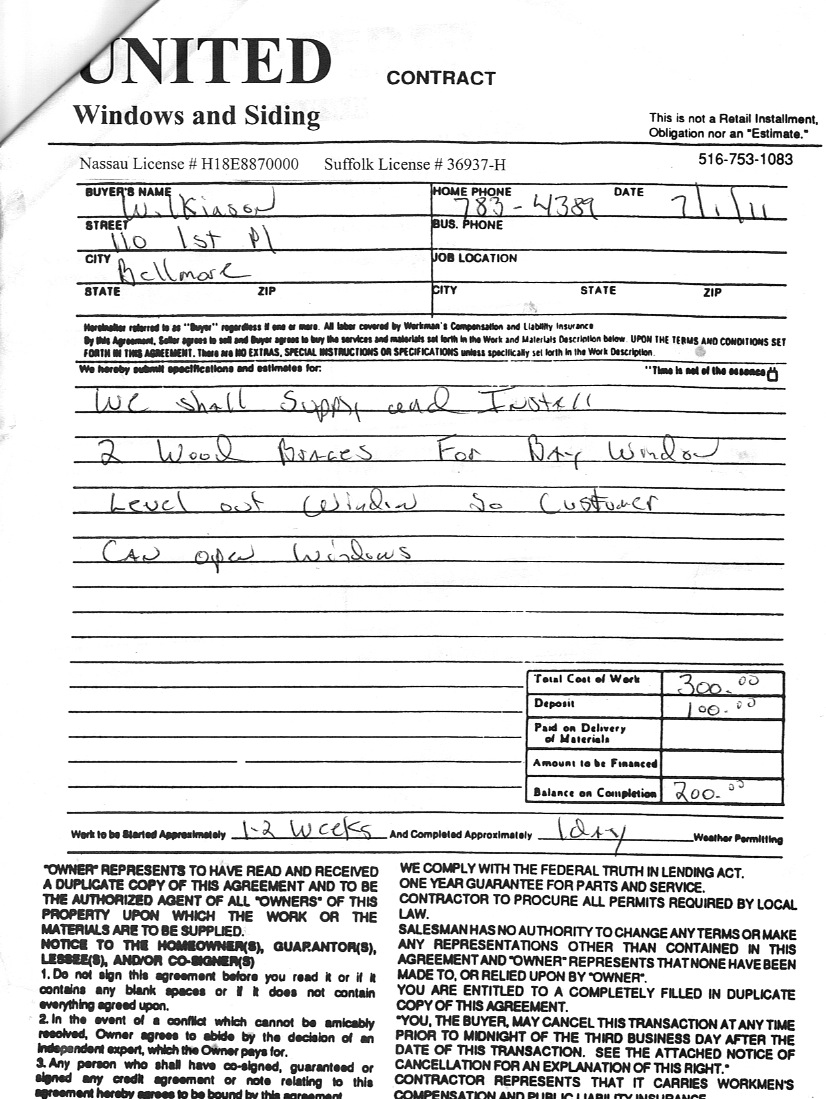 UNITED
CONTRACT
Windows and Siding
This is not a Retail Installment,
Obligation nor an "Estimate."
Nassau License # H18E8870000 Suffolk License # 36937-H
516-753-1083
BUYER'S NAME Wilkinson HOME PHONE 783-4389 DATE 7/1/11
STREET 110 1st Pl BUS. PHONE
CITY Bellmore JOB LOCATION
STATE ZIP CITY STATE ZIP
Hereinafter referred to as "Buyer" regardless if one or more. All labor covered by Workman's Compensation and Liability Insurance
By this Agreement, Seller agrees to sell and Buyer agrees to buy the services and materials set forth in the Work and Materials Description below. UPON THE TERMS AND CONDITIONS SET
FORTH IN THIS AGREEMENT. There are NO EXTRAS, SPECIAL INSTRUCTIONS OR SPECIFICATIONS unless specifically set forth in the Work Description.
We hereby submit specifications and estimates for: "Time is not of the essence
We shall Supply and Install
2 Wood Braces For Bay Window
Level out Window So Customer
CAN open Windows
Total Cost of Work 300.00
Deposit 100.00
Paid on Delivery
of Materials
Amount to be Financed
Balance on Completion 200.00
Work to be Started Approximately 1-2 Weeks And Completed Approximately 1 day Weather Permitting
"OWNER" REPRESENTS TO HAVE READ AND RECEIVED
A DUPLICATE COPY OF THIS AGREEMENT AND TO BE
THE AUTHORIZED AGENT OF ALL "OWNERS" OF THIS
PROPERTY UPON WHICH THE WORK OR THE
MATERIALS ARE TO BE SUPPLIED.
NOTICE TO THE HOMEOWNER(S), GUARANTOR(S),
LESSEE(S), AND/OR CO-SIGNER(S)
1. Do not sign this agreement before you read it or if it
contains any blank spaces or if it does not contain
everything agreed upon.
2. In the event of a conflict which cannot be amicably
resolved, Owner agrees to abide by the decision of an
independent expert, which the Owner pays for.
3. Any person who shall have co-signed, guaranteed or
signed any credit agreement or note relating to this
agreement hereby agrees to be bound by this agreement
WE COMPLY WITH THE FEDERAL TRUTH IN LENDING ACT.
ONE YEAR GUARANTEE FOR PARTS AND SERVICE.
CONTRACTOR TO PROCURE ALL PERMITS REQUIRED BY LOCAL
LAW.
SALESMAN HAS NO AUTHORITY TO CHANGE ANY TERMS OR MAKE
ANY REPRESENTATIONS OTHER THAN CONTAINED IN THIS
AGREEMENT AND "OWNER" REPRESENTS THAT NONE HAVE BEEN
MADE TO, OR RELIED UPON BY "OWNER".
YOU ARE ENTITLED TO A COMPLETELY FILLED IN DUPLICATE
COPY OF THIS AGREEMENT.
"YOU, THE BUYER, MAY CANCEL THIS TRANSACTION AT ANY TIME
PRIOR TO MIDNIGHT OF THE THIRD BUSINESS DAY AFTER THE
DATE OF THIS TRANSACTION. SEE THE ATTACHED NOTICE OF
CANCELLATION FOR AN EXPLANATION OF THIS RIGHT."
CONTRACTOR REPRESENTS THAT IT CARRIES WORKMEN'S
COMPENSATION AND PUBLIC LIABILITY INSURANCE